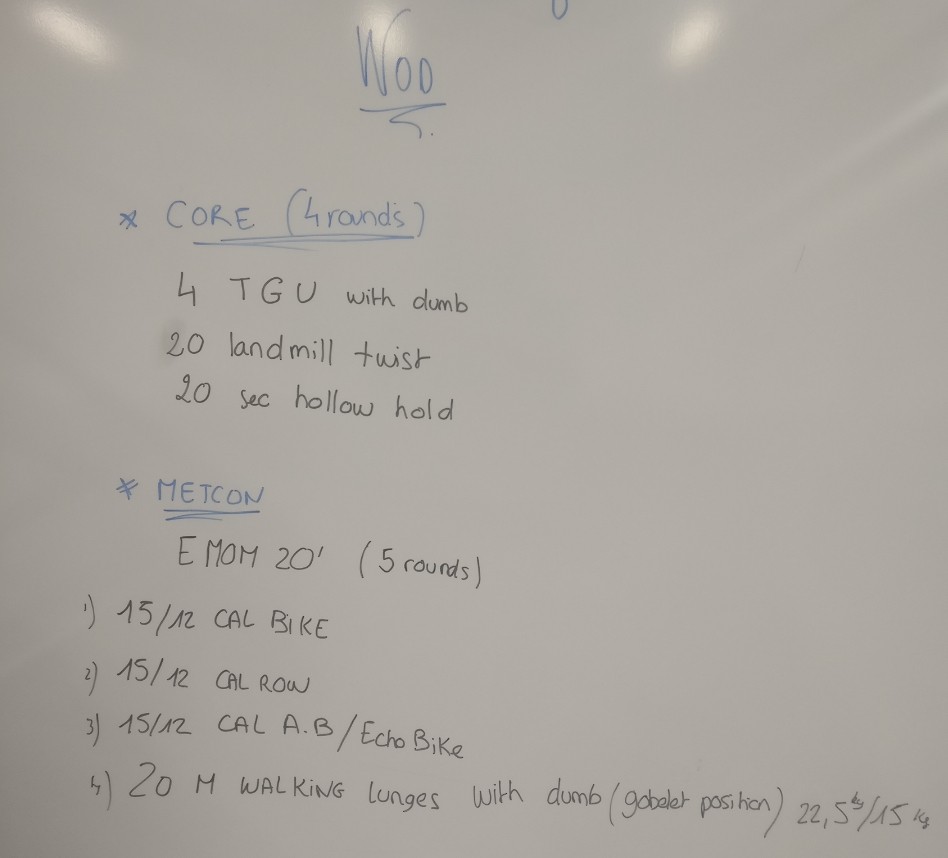 WOD
* CORE (4 rounds)
4 TGU with dumb
20 landmill twist
20 sec hollow hold
* METCON
EMOM 20' (5 rounds)
1) 15/12 CAL BIKE
2) 15/12 CAL ROW
3) 15/12 CAL A.B/Echo Bike
4) 20 M WALKING lunges with dumb (gobelet position) 22,5kg/15 kg